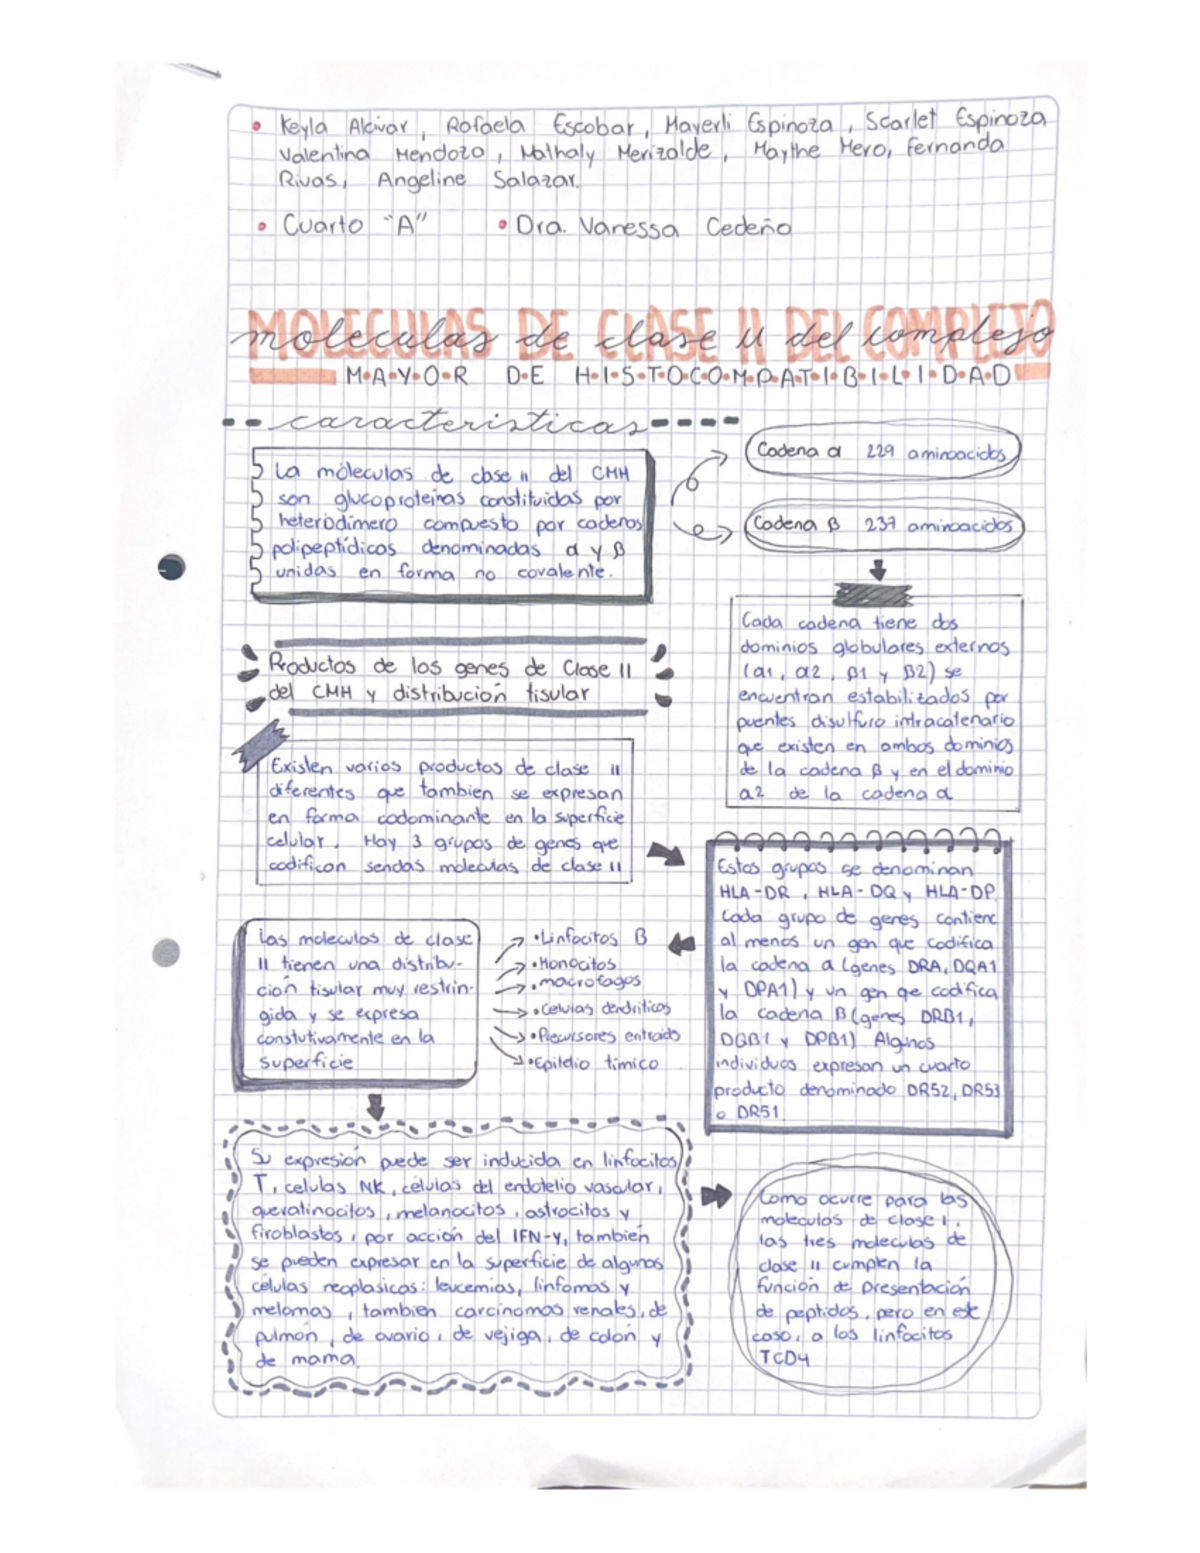 • Keyla Alcivar, Rafaela Escobar, Mayerli Espinoza, Scarlet Espinoza
Valentina Mendoza, Nathaly Merizalde, Maythe Mero, Fernanda
Rivas, Angeline Salazar.
• Cuarto "A" • Dra. Vanessa Cedeño
MOLECULAS DE CLASE II DEL COMPLEJO
M•A•Y•O•R D•E H•I•S•T•O•C•O•M•P•A•T•I•B•I•L•I•D•A•D
caracteristicas
La móleculas de clase II del CMH
son glucoproteinas constituidas por
heteriodimero compuesto por cadenas
polipeptídicas denominadas α y β
unidas en forma no covalente.
Cadena α 229 aminoacidos
Cadena β 237 aminoacidos
Cada cadena tiene dos
dominios globulares externos
(α1, α2, β1 y β2) se
encuentran estabilizados por
puentes disulfuro intracatenario
que existen en ambos dominios
de la cadena β y en el dominio
α2 de la cadena α
Productos de los genes de Clase II
del CMH y distribución tisular
Existen varios productos de clase II
diferentes que tambien se expresan
en forma codominante en la superficie
celular. Hay 3 grupos de genes que
codifican sendas moleculas de clase II
Estos grupos se denominan
HLA-DR, HLA-DQ y HLA-DP
Cada grupo de genes contiene
al menos un gen que codifica
la cadena α (genes DRA, DQA1
y DPA1) y un gen qe codifica
la cadena β (genes DRB1,
DQB1 y DPB1) Algunos
individuos expresan un cuarto
producto denominado DR52, DR53
o DR51
Las moleculas de clase
II tienen una distribu-
ción tisular muy restrin-
gida y se expresa
constutivamente en la
superficie
• Linfocitos B
• Monocitos
• macrofagos
• Celulas dendriticas
• Precursores entraido
• Epitelio timico
Su expresión puede ser inducida en linfocitos
T, celulas NK, células del endotelio vascular,
queratinocitos, melanocitos, astrocitos y
firoblastos, por acción del IFN-γ, también
se pueden expresar en la superficie de algunas
células neoplasicas: leucemias, linfomas y
melomas, tambien carcinomas renales, de
pulmón, de ovario, de vejiga, de colón y
de mama.
Como ocurre para las
moleculas de clase I,
las tres moleculas de
clase II cumplen la
función de presentación
de peptidos, pero en este
caso, a los linfocitos
TCD4